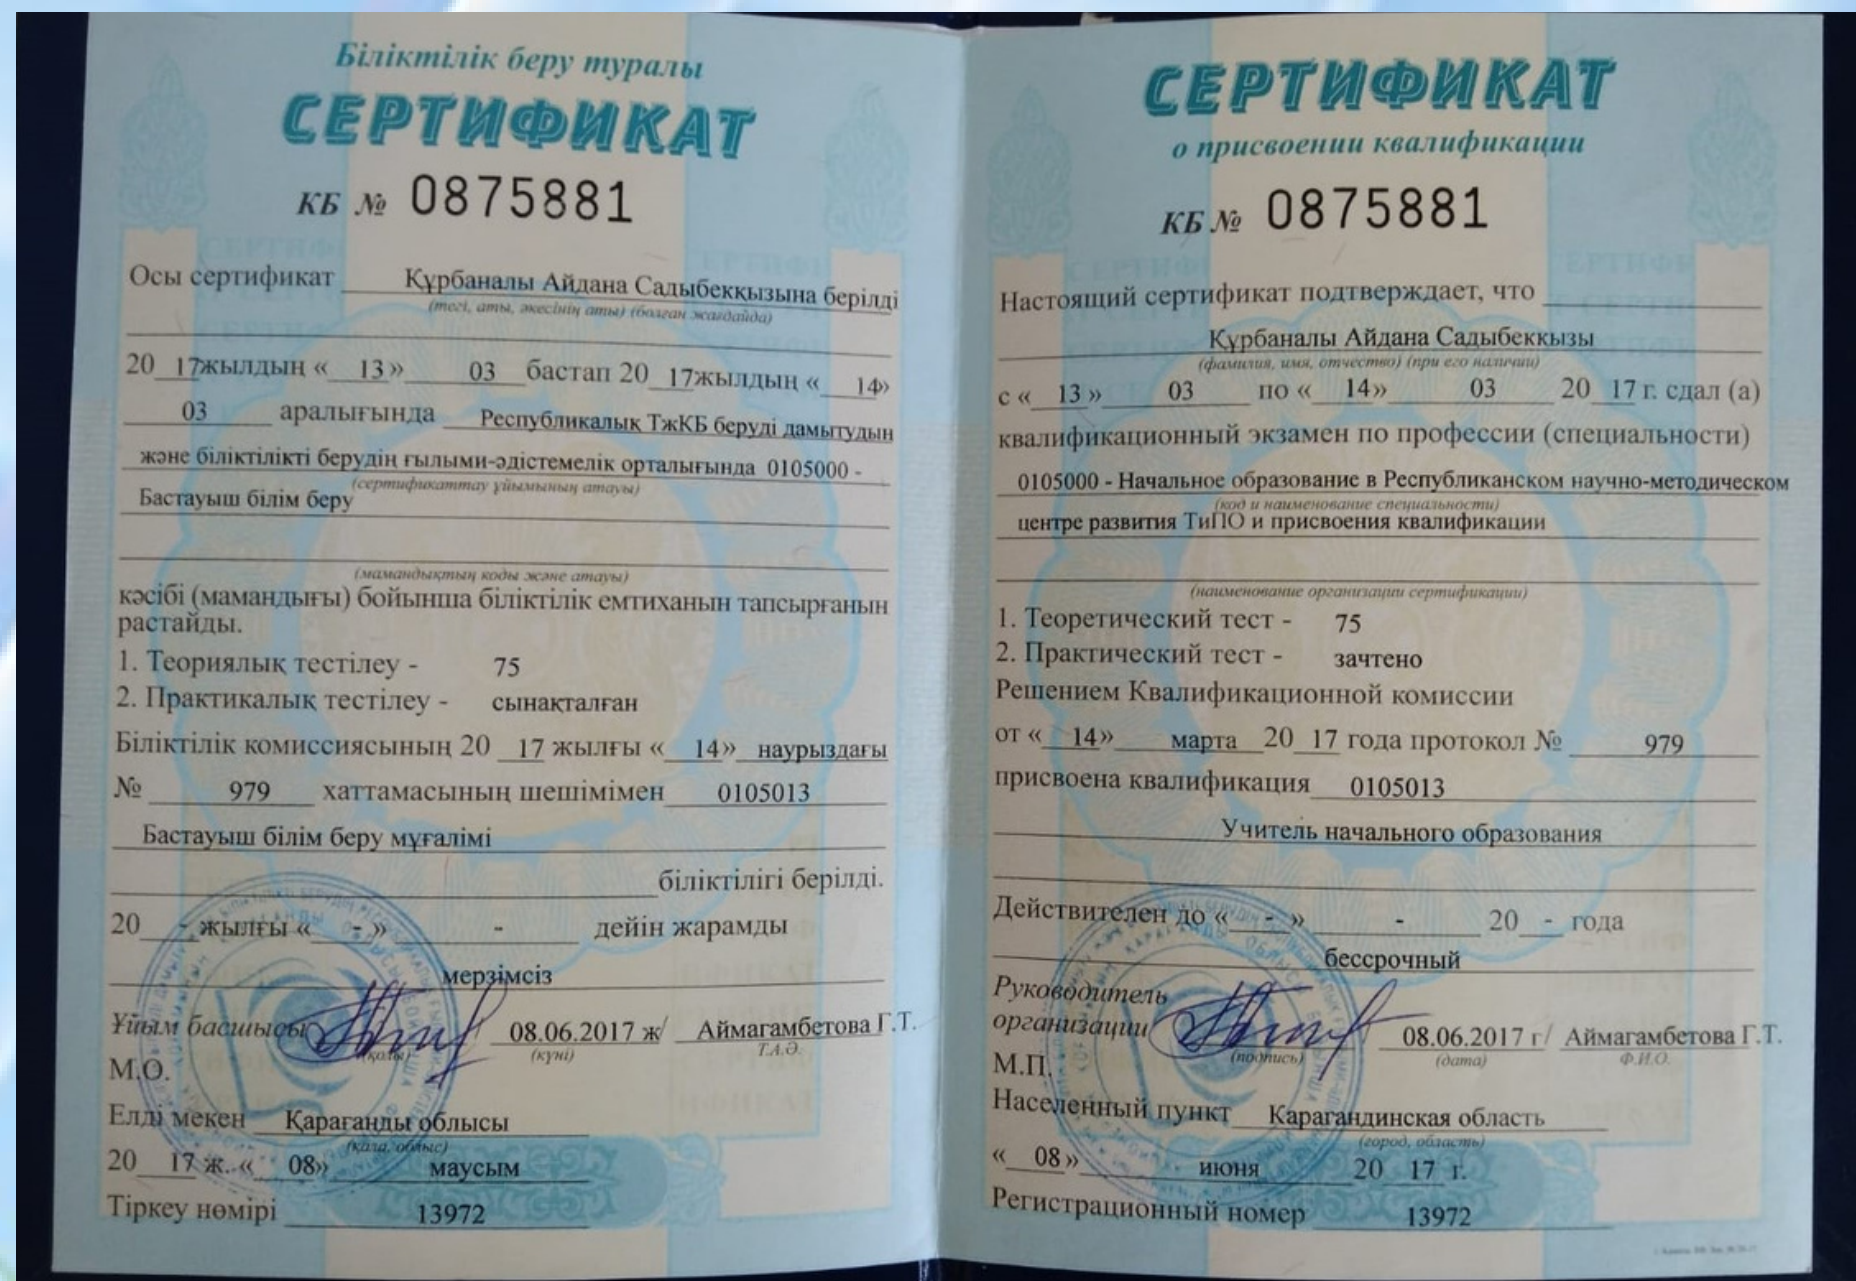 Біліктілік беру туралы
СЕРТИФИКАТ
КБ № 0875881
Осы сертификат Құрбаналы Айдана Садыбекқызына берілді
(тегі, аты, әкесінің аты) (болған жағдайда)
20 17жылдың « 13» 03 бастап 20 17жылдың « 14»
03 аралығында Республикалық ТжКБ беруді дамытудың
және біліктілікті берудің ғылыми-әдістемелік орталығында 0105000 -
(сертификаттау ұйымының атауы)
Бастауыш білім беру
(мамандықтың коды және атауы)
кәсібі (мамандығы) бойынша біліктілік емтиханын тапсырғанын
растайды.
1. Теориялық тестілеу - 75
2. Практикалық тестілеу - сынақталған
Біліктілік комиссиясының 20 17 жылғы « 14» наурыздағы
№ 979 хаттамасының шешімімен 0105013
Бастауыш білім беру мұғалімі
біліктілігі берілді.
20 - жылғы « - » - дейін жарамды
мерзімсіз
Ұйым басшысы 08.06.2017 ж/ Аймагамбетова Г.Т.
(қолы) (күні) Т.А.Ә.
М.О.
Елді мекен Қарағанды облысы
(қала, облыс)
20 17 ж. « 08» маусым
Тіркеу нөмірі 13972
СЕРТИФИКАТ
о присвоении квалификации
КБ № 0875881
Настоящий сертификат подтверждает, что
Құрбаналы Айдана Садыбекқызы
(фамилия, имя, отчество) (при его наличии)
с « 13 » 03 по « 14» 03 20 17 г. сдал (а)
квалификационный экзамен по профессии (специальности)
0105000 - Начальное образование в Республиканском научно-методическом
(код и наименование специальности)
центре развития ТиПО и присвоения квалификации
(наименование организации сертификации)
1. Теоретический тест - 75
2. Практический тест - зачтено
Решением Квалификационной комиссии
от « 14» марта 20 17 года протокол № 979
присвоена квалификация 0105013
Учитель начального образования
Действителен до « - » - 20 - года
бессрочный
Руководитель
организации 08.06.2017 г/ Аймагамбетова Г.Т.
(подпись) (дата) Ф.И.О.
М.П.
Населенный пункт Карагандинская область
(город, область)
« 08 » июня 20 17 г.
Регистрационный номер 13972